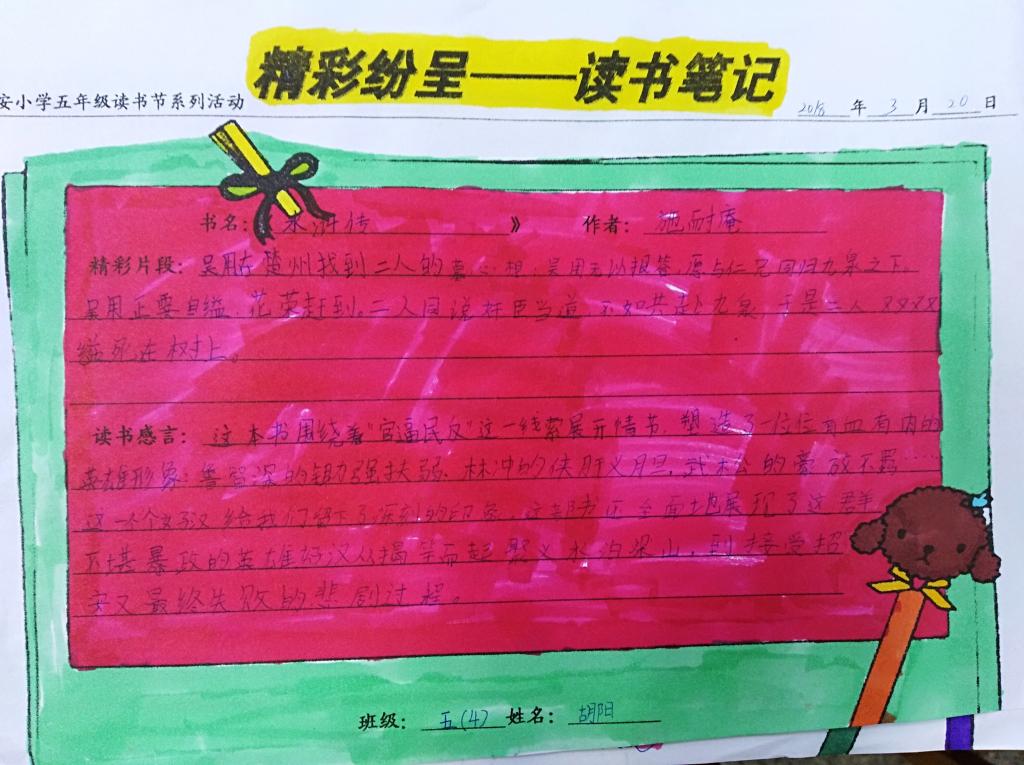 精彩纷呈——读书笔记
安小学五年级读书节系列活动
2018年3月20日
书名:《水浒传》 作者:施耐庵
精彩片段:吴用在楚州找到二人的墓,心想:吴用无以报答,愿与仁兄同归九泉之下。
吴用正要自缢,花荣赶到。二人同说奸臣当道不如共赴九泉,于是二人双双
缢死在树上。
读书感言:这本书围绕着"官逼民反"这一线索展开情节,塑造了一位位有血有肉的
英雄形象:鲁智深的锄强扶弱、林冲的侠肝义胆,武松的豪放不羁……
这一个个给我们留下了深刻的印象,这部书还全面地展现了这群
不堪暴政的英雄好汉从揭竿而起,聚义水泊梁山,到接受招
安又最终失败的悲剧过程。
班级:五(4) 姓名:胡阳